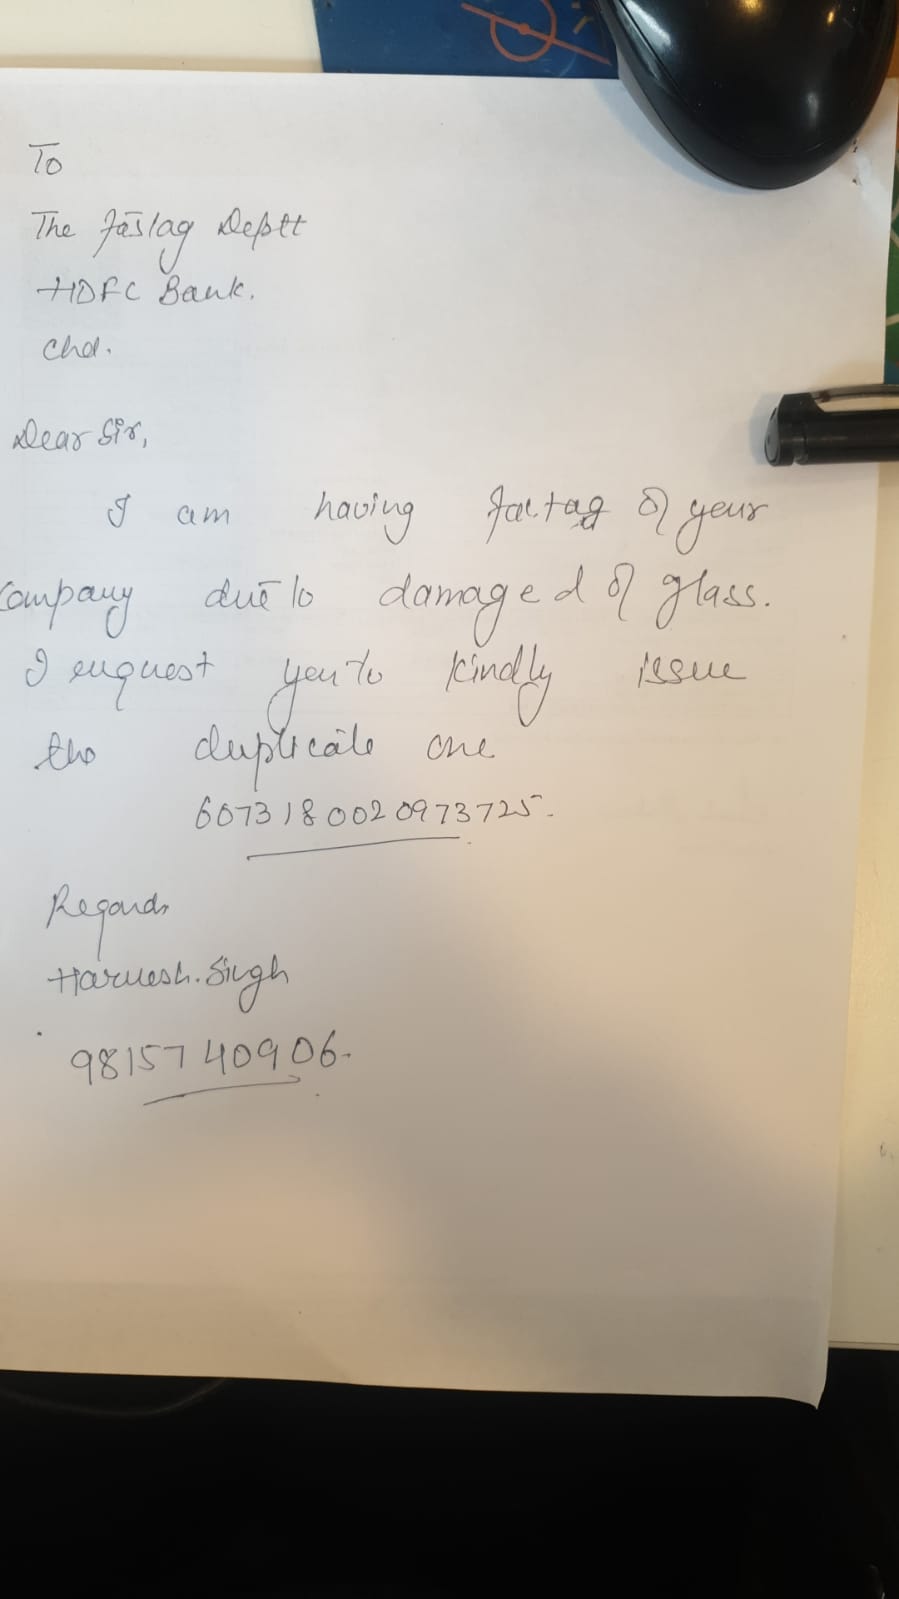 To
The Fastag Deptt
HDFC Bank.
Chd.
Dear Sir,
I am having fastag of your
company due to damaged of glass.
I request you to kindly issue
the duplicate one
6073180020973725.
Regards
Harnesh. Singh
9815740906.